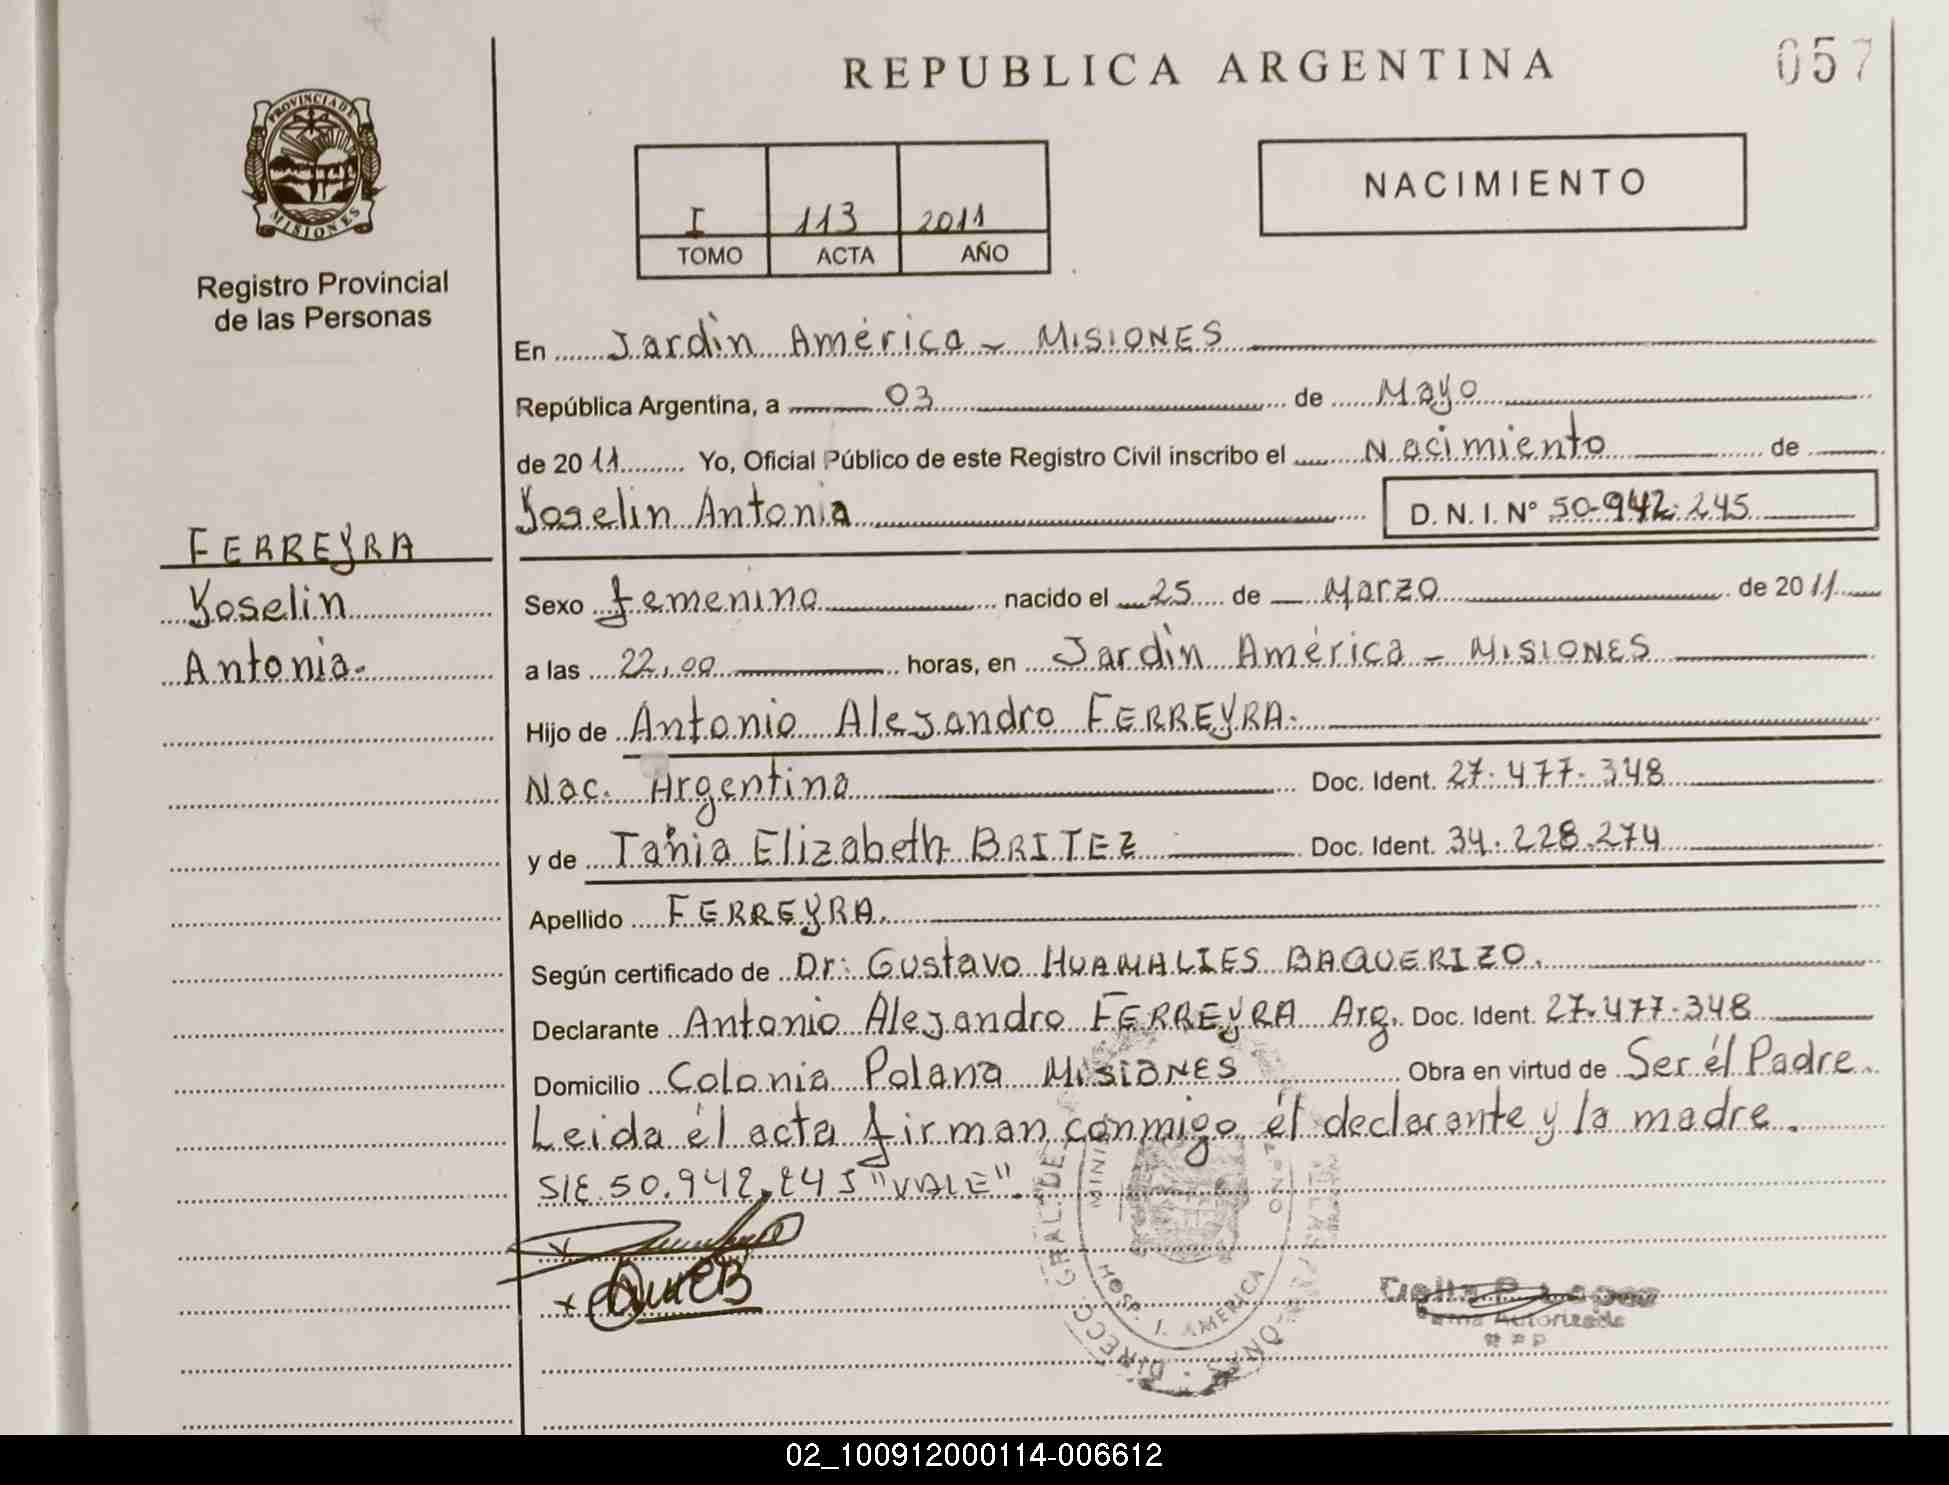 REPUBLICA ARGENTINA
057
PROVINCIA DE
MISIONES
Registro Provincial
de las Personas
I 113 2011
TOMO ACTA AÑO
NACIMIENTO
En Jardìn América - MISIONES
República Argentina, a 03 de Mayo
de 2011 Yo, Oficial Público de este Registro Civil inscribo el Nacimiento de
Yoselin Antonia D. N. I. Nº 50.942.245
FERREYRA
Yoselin
Antonia.
Sexo femenino nacido el 25 de Marzo de 2011
a las 22,00 horas, en Jardìn América - MISIONES
Hijo de Antonio Alejandro FERREYRA.
Nac. Argentina Doc. Ident. 27.477.348
y de Tania Elizabeth BRITEZ Doc. Ident. 34.228.274
Apellido FERREYRA.
Según certificado de Dr: Gustavo HUAMALIES BAQUERIZO.
Declarante Antonio Alejandro FERREYRA Arg. Doc. Ident. 27.477.348
Domicilio Colonia Polana MISIONES Obra en virtud de Ser él Padre.
Leida él acta firman conmigo él declarante y la madre.
S/E 50.942.245 "VALE".
DIRECC. GRAL. DE
HOSP. J. AMERICA
02_100912000114-006612